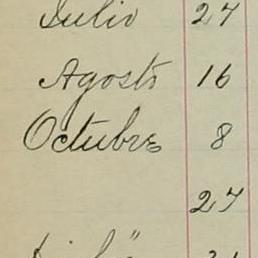 Julio 27
Agosto 16
Octubre 8
27